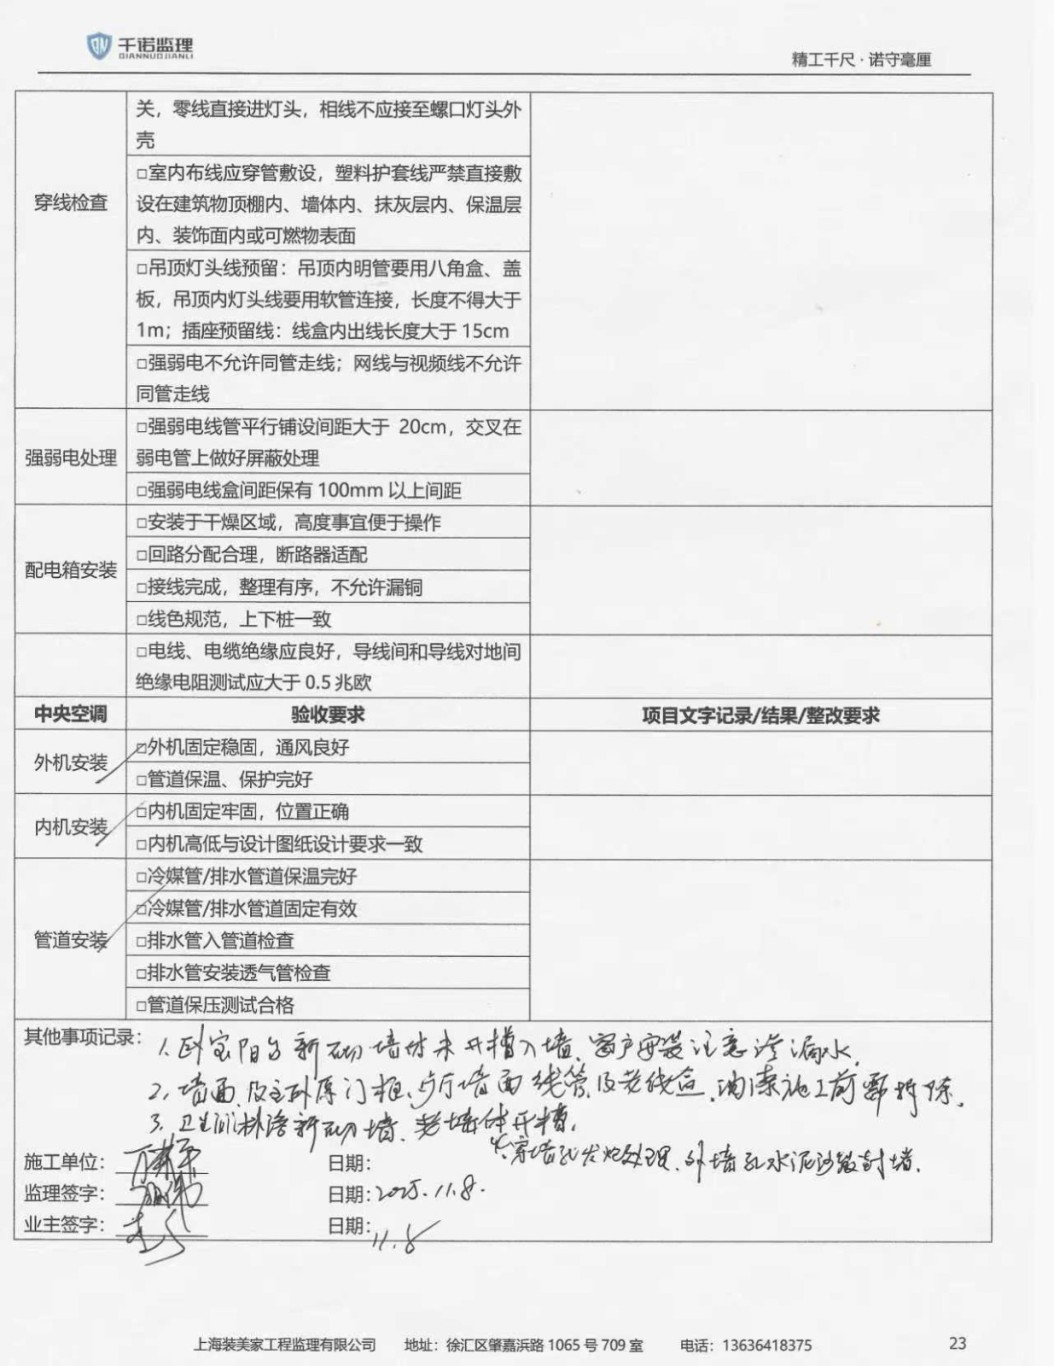 千诺监理
QIANNUOJIANLI
精工千尺·诺守毫厘
关，零线直接进灯头，相线不应接至螺口灯头外
壳
穿线检查
□室内布线应穿管敷设，塑料护套线严禁直接敷
设在建筑物顶棚内、墙体内、抹灰层内、保温层
内、装饰面内或可燃物表面
□吊顶灯头线预留：吊顶内明管要用八角盒、盖
板，吊顶内灯头线要用软管连接，长度不得大于
1m；插座预留线：线盒内出线长度大于 15cm
□强弱电不允许同管走线；网线与视频线不允许
同管走线
强弱电处理
□强弱电线管平行铺设间距大于 20cm，交叉在
弱电管上做好屏蔽处理
□强弱电线盒间距保有 100mm 以上间距
配电箱安装
□安装于干燥区域，高度事宜便于操作
□回路分配合理，断路器适配
□接线完成，整理有序，不允许漏铜
□线色规范，上下桩一致
□电线、电缆绝缘应良好，导线间和导线对地间
绝缘电阻测试应大于 0.5 兆欧
中央空调 验收要求 项目文字记录/结果/整改要求
外机安装
□外机固定稳固，通风良好
□管道保温、保护完好
内机安装
□内机固定牢固，位置正确
□内机高低与设计图纸设计要求一致
管道安装
□冷媒管/排水管道保温完好
□冷媒管/排水管道固定有效
□排水管入管道检查
□排水管安装透气管检查
□管道保压测试合格
其他事项记录：
1. 卧室阳台新砌墙体未开槽入墙，窗户安装注意渗漏水.
2. 墙面及主卧原门框、 墙面线管及老线盒，油漆施工前需拆除.
3. 卫生间淋浴新砌墙、老墙体开槽，
穿墙孔发泡处理，外墙孔水泥沙浆封堵.
施工单位： 日期：
监理签字： 日期：2025.11.8.
业主签字： 日期：11.8
上海装美家工程监理有限公司 地址：徐汇区肇嘉浜路 1065 号 709 室 电话：13636418375 23